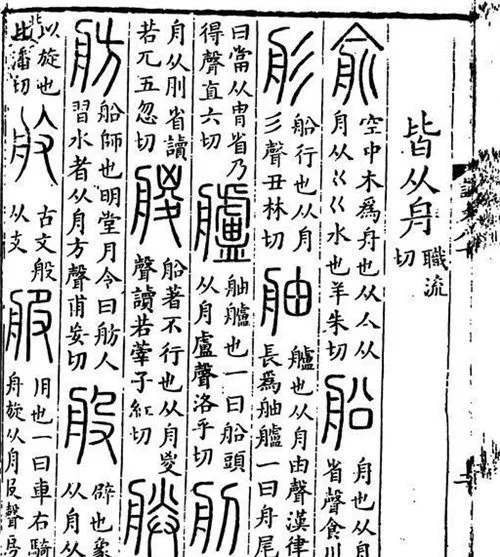 皆从舟
職流
切
俞
空中木爲舟也从亼从
舟从巜巜水也羊朱切
船
舟也从舟
省聲食川
彤
船行也从舟
彡聲丑林切
舳
艫也从舟由聲漢律
長爲舳艫一曰舟尾
曰當从冑省乃
得聲直六切
艫
舳艫也一曰船頭
从舟盧聲洛乎切
舟从刖省讀
若兀五忽切
艐
船著不行也从舟㚇
聲讀若 子紅切
朕
舫
船師也明堂月令曰舫人
習水者从舟方聲甫妄切
般
辟也象
从舟从
以旋也
北潘切
古文般
从支
服
用也一曰車右騎
舟旋从舟𠬝聲房